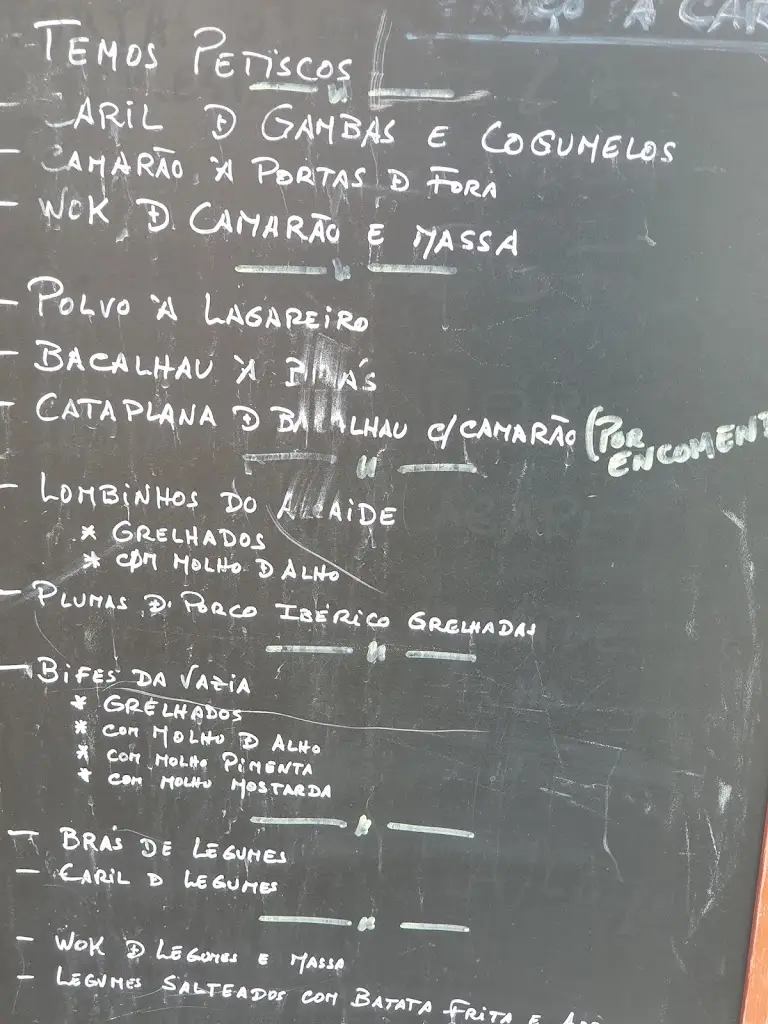 À CAR
TEMOS PETISCOS
- CARIL D GAMBAS E COGUMELOS
- CAMARÃO À PORTAS D FORA
- WOK D CAMARÃO E MASSA
- POLVO À LAGAREIRO
- BACALHAU À BRÁS
- CATAPLANA D BACALHAU C/CAMARÃO (POR
ENCOMENT
- LOMBINHOS DO ALCAIDE
* GRELHADOS
* COM MOLHO D ALHO
- PLUMAS D PORCO IBÉRICO GRELHADAS
- BIFES DA VAZIA
* GRELHADOS
* COM MOLHO D ALHO
* COM MOLHO PIMENTA
* COM MOLHO MOSTARDA
- BRÁS DE LEGUMES
- CARIL D LEGUMES
- WOK D LEGUMES E MASSA
- LEGUMES SALTEADOS COM BATATA FRITA E